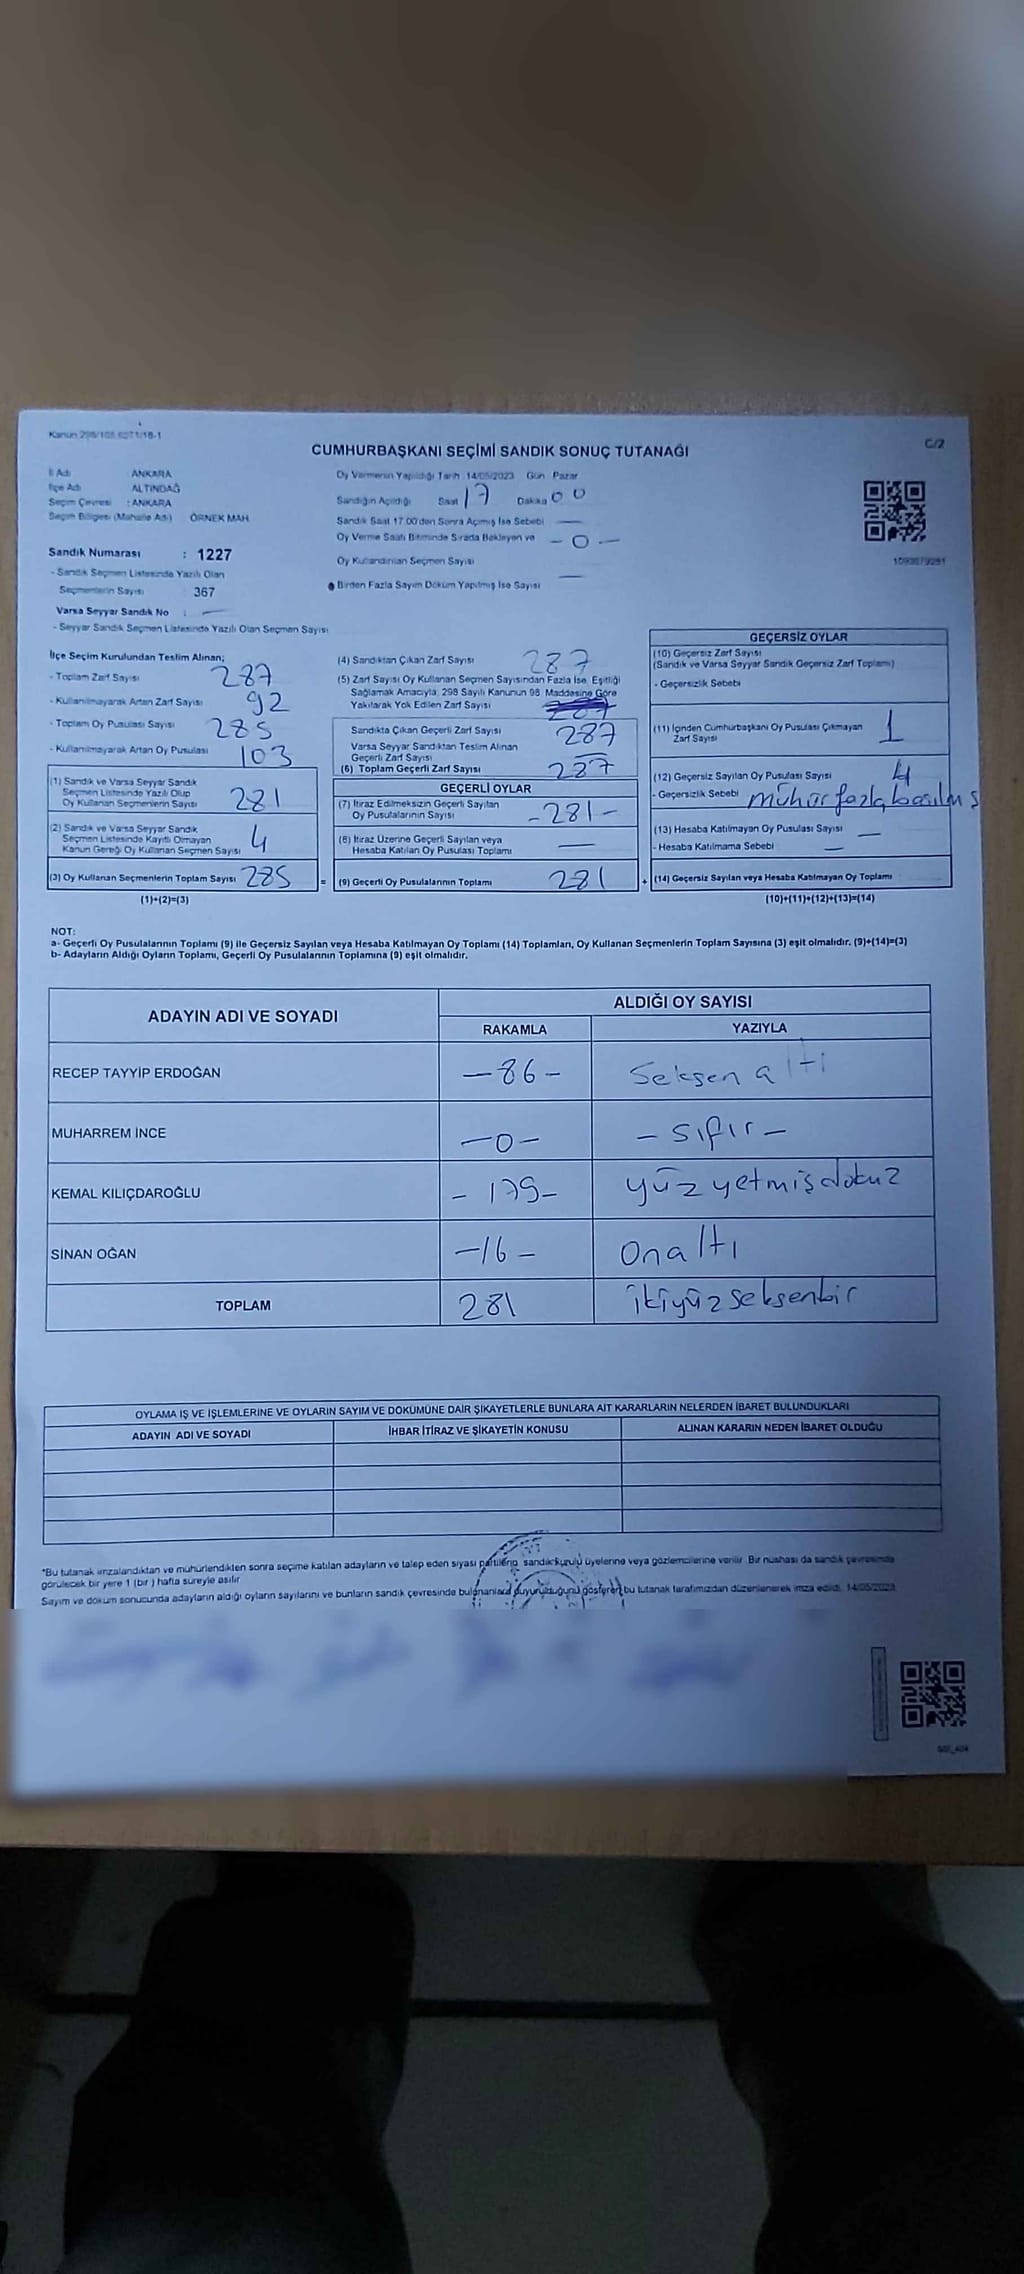 Kanun 298/105, 6271/18-1
C/2
CUMHURBAŞKANI SEÇİMİ SANDIK SONUÇ TUTANAĞI
İl Adı ANKARA
İlçe Adı ALTINDAĞ
Seçim Çevresi : ANKARA
Seçim Bölgesi (Mahalle Adı) ÖRNEK MAH.
Sandık Numarası : 1227
- Sandık Seçmen Listesinde Yazılı Olan
Seçmenlerin Sayısı 367
Varsa Seyyar Sandık No : —
- Seyyar Sandık Seçmen Listesinde Yazılı Olan Seçmen Sayısı
Oy Vermenin Yapıldığı Tarih : 14/05/2023 Gün Pazar
Sandığın Açıldığı Saat 17 Dakika 00
Sandık Saat 17.00'den Sonra Açımış İse Sebebi —
Oy Verme Saati Bitiminde Sırada Bekleyen ve — 0 —
Oy Kullandırılan Seçmen Sayısı
Birden Fazla Sayım Döküm Yapılmış İse Sayısı —
İlçe Seçim Kurulundan Teslim Alınan;
- Toplam Zarf Sayısı 287
- Kullanılmayarak Artan Zarf Sayısı 92
- Toplam Oy Pusulası Sayısı 285
- Kullanılmayarak Artan Oy Pusulası 103
(1) Sandık ve Varsa Seyyar Sandık
Seçmen Listesinde Yazılı Olup
Oy Kullanan Seçmenlerin Sayısı 281
(2) Sandık ve Varsa Seyyar Sandık
Seçmen Listesinde Kayıtlı Olmayan
Kanun Gereği Oy Kullanan Seçmen Sayısı 4
(3) Oy Kullanan Seçmenlerin Toplam Sayısı 285 =
(1)+(2)=(3)
(4) Sandıktan Çıkan Zarf Sayısı 287
(5) Zarf Sayısı Oy Kullanan Seçmen Sayısından Fazla İse, Eşitliği
Sağlamak Amacıyla, 298 Sayılı Kanunun 98. Maddesine Göre
Yakılarak Yok Edilen Zarf Sayısı
Sandıkta Çıkan Geçerli Zarf Sayısı 287
Varsa Seyyar Sandıktan Teslim Alınan
Geçerli Zarf Sayısı —
(6) Toplam Geçerli Zarf Sayısı 287
GEÇERLİ OYLAR
(7) İtiraz Edilmeksizin Geçerli Sayılan
Oy Pusulalarının Sayısı - 281 -
(8) İtiraz Üzerine Geçerli Sayılan veya
Hesaba Katılan Oy Pusulası Toplamı —
(9) Geçerli Oy Pusulalarının Toplamı 281 +
GEÇERSİZ OYLAR
(10) Geçersiz Zarf Sayısı
(Sandık ve Varsa Seyyar Sandık Geçersiz Zarf Toplamı)
- Geçersizlik Sebebi
(11) İçinden Cumhurbaşkanı Oy Pusulası Çıkmayan
Zarf Sayısı 1
(12) Geçersiz Sayılan Oy Pusulası Sayısı 4
- Geçersizlik Sebebi mühür fazla basılmış
(13) Hesaba Katılmayan Oy Pusulası Sayısı —
- Hesaba Katılmama Sebebi —
(14) Geçersiz Sayılan veya Hesaba Katılmayan Oy Toplamı
(10)+(11)+(12)+(13)=(14)
NOT:
a- Geçerli Oy Pusulalarının Toplamı (9) ile Geçersiz Sayılan veya Hesaba Katılmayan Oy Toplamı (14) Toplamları, Oy Kullanan Seçmenlerin Toplam Sayısına (3) eşit olmalıdır. (9)+(14)=(3)
b- Adayların Aldığı Oyların Toplamı, Geçerli Oy Pusulalarının Toplamına (9) eşit olmalıdır.
ADAYIN ADI VE SOYADI ALDIĞI OY SAYISI
RAKAMLA YAZIYLA
RECEP TAYYİP ERDOĞAN — 86 — Seksen altı
MUHARREM İNCE — 0 — — sıfır —
KEMAL KILIÇDAROĞLU - 179 - yüz yetmiş dokuz
SİNAN OĞAN — 16 — On altı
TOPLAM 281 ikiyüz seksenbir
OYLAMA İŞ VE İŞLEMLERİNE VE OYLARIN SAYIM VE DÖKÜMÜNE DAİR ŞİKAYETLERLE BUNLARA AİT KARARLARIN NELERDEN İBARET BULUNDUKLARI
ADAYIN ADI VE SOYADI İHBAR İTİRAZ VE ŞİKAYETİN KONUSU ALINAN KARARIN NEDEN İBARET OLDUĞU
*Bu tutanak imzalandıktan ve mühürlendikten sonra seçime katılan adayların ve talep eden siyasi partilerin sandık kurulu üyelerine veya gözlemcilerine verilir. Bir nüshası da sandık çevresinde
görülecek bir yere 1 (bir) hafta süreyle asılır.
Sayım ve döküm sonucunda adayların aldığı oyların sayılarını ve bunların sandık çevresinde bulunanlara duyurulduğunu gösteren bu tutanak tarafımızdan düzenlenerek imza edildi. 14/05/2023